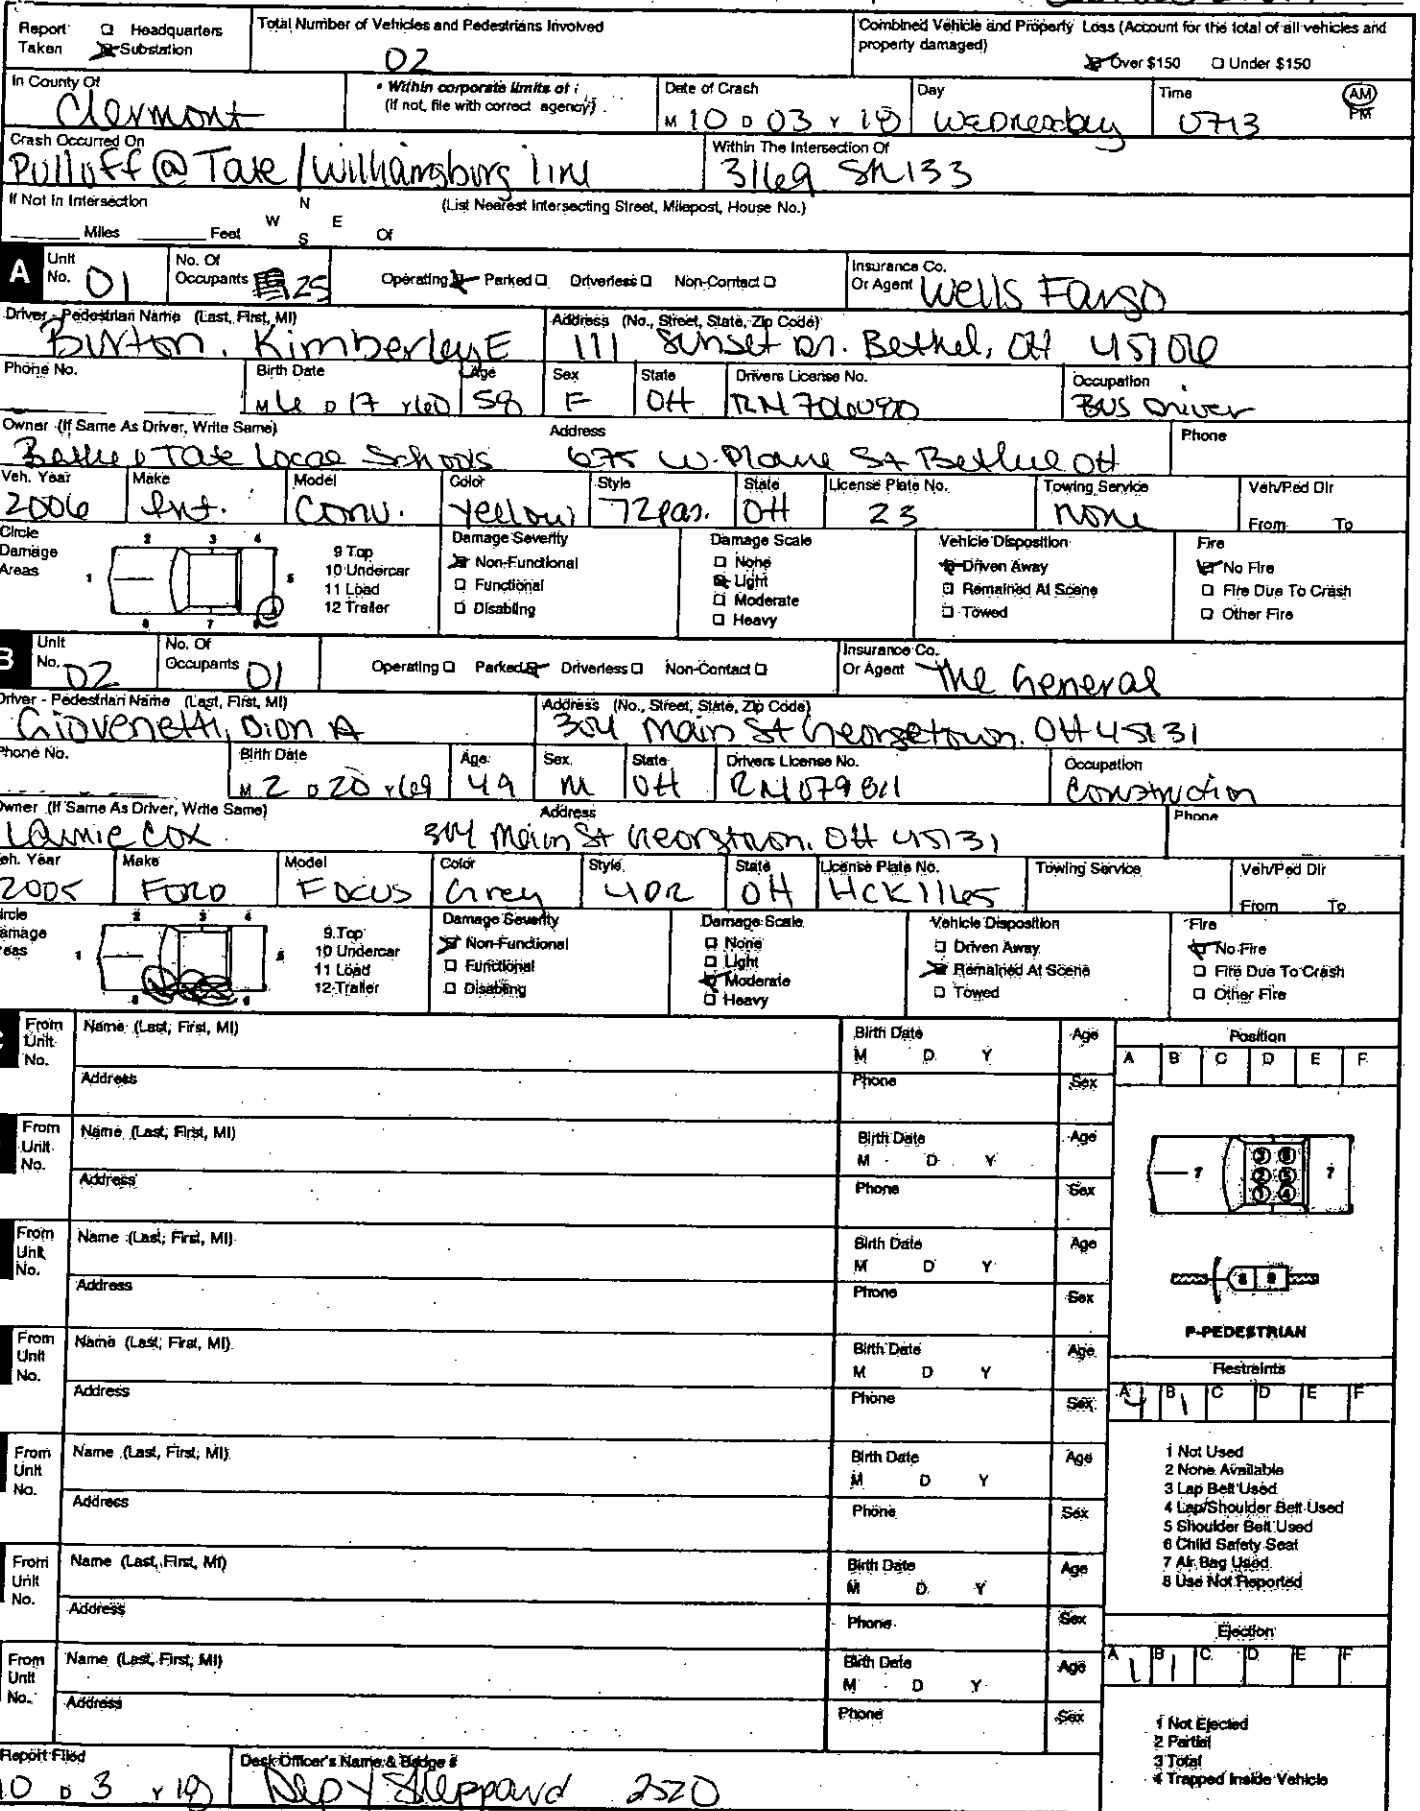 Report Taken ☐ Headquarters ☒ Substation
Total Number of Vehicles and Pedestrians Involved 02
Combined Vehicle and Property Loss (Account for the total of all vehicles and property damaged)
☒ Over $150 ☐ Under $150
In County Of Clermont
• Within corporate limits of
(If not, file with correct agency)
Date of Crash M 10 D 03 Y 18
Day Wednesday
Time 0713 AM PM
Crash Occurred On Pulloff @ Tate/Williamsburg line
Within The Intersection Of 3169 SR133
If Not In Intersection (List Nearest Intersecting Street, Milepost, House No.)
Miles Feet N W E S Of
A Unit No. 01 No. Of Occupants 25 Operating ☒ Parked ☐ Driverless ☐ Non-Contact ☐ Insurance Co. Or Agent Wells Fargo
Driver - Pedestrian Name (Last, First, MI) Burton, Kimberley E
Address (No., Street, State, Zip Code) 111 Sunset Dr. Bethel, OH 45106
Phone No. Birth Date M 6 D 17 Y 60 Age 58 Sex F State OH Drivers License No. Occupation Bus Driver
Owner (If Same As Driver, Write Same) Bethel Tate Local Schools Address 675 W. Plane St Bethel OH Phone
Veh. Year 2006 Make Int. Model Conv. Color Yellow Style 72 pas. State OH License Plate No. 23 Towing Service None Veh/Ped Dir From To
Circle Damage Areas 1 2 3 4 5 6 7 8
9 Top
10 Undercar
11 Load
12 Trailer
Damage Severity ☒ Non-Functional ☐ Functional ☐ Disabling
Damage Scale ☐ None ☒ Light ☐ Moderate ☐ Heavy
Vehicle Disposition ☒ Driven Away ☐ Remained At Scene ☐ Towed
Fire ☒ No Fire ☐ Fire Due To Crash ☐ Other Fire
B Unit No. 02 No. Of Occupants 01 Operating ☐ Parked ☒ Driverless ☐ Non-Contact ☐ Insurance Co. Or Agent The General
Driver - Pedestrian Name (Last, First, MI) Giovenetti, Dion A
Address (No., Street, State, Zip Code) 304 Main St Georgetown, OH 45131
Phone No. Birth Date M 2 D 20 Y 69 Age 49 Sex M State OH Drivers License No. Occupation Construction
Owner (If Same As Driver, Write Same) Cox Address 304 Main St Georgtown, OH 45131 Phone
Veh. Year 2005 Make Ford Model Focus Color Grey Style 4DR State OH License Plate No. HCK1165 Towing Service Veh/Ped Dir From To
Circle Damage Areas 1 2 3 4 5 6
9 Top
10 Undercar
11 Load
12 Trailer
Damage Severity ☒ Non-Functional ☐ Functional ☐ Disabling
Damage Scale ☐ None ☐ Light ☒ Moderate ☐ Heavy
Vehicle Disposition ☐ Driven Away ☒ Remained At Scene ☐ Towed
Fire ☒ No Fire ☐ Fire Due To Crash ☐ Other Fire
From Unit No. Name (Last, First, MI) Birth Date M D Y Age
Address Phone Sex
Position
A B C D E F
From Unit No. Name (Last, First, MI) Birth Date M D Y Age
Address Phone Sex
From Unit No. Name (Last, First, MI) Birth Date M D Y Age
Address Phone Sex
P-PEDESTRIAN
From Unit No. Name (Last, First, MI) Birth Date M D Y Age
Address Phone Sex
Restraints
A 4 B 1 C D E F
1 Not Used
2 None Available
3 Lap Belt Used
4 Lap/Shoulder Belt Used
5 Shoulder Belt Used
6 Child Safety Seat
7 Air Bag Used
8 Use Not Reported
From Unit No. Name (Last, First, MI) Birth Date M D Y Age
Address Phone Sex
From Unit No. Name (Last, First, MI) Birth Date M D Y Age
Address Phone Sex
From Unit No. Name (Last, First, MI) Birth Date M D Y Age
Address Phone Sex
Ejection
A 1 B 1 C D E F
1 Not Ejected
2 Partial
3 Total
4 Trapped Inside Vehicle
Report Filed 10 D 3 Y 18
Desk Officer's Name & Badge # Dep Y Sheppard 2520